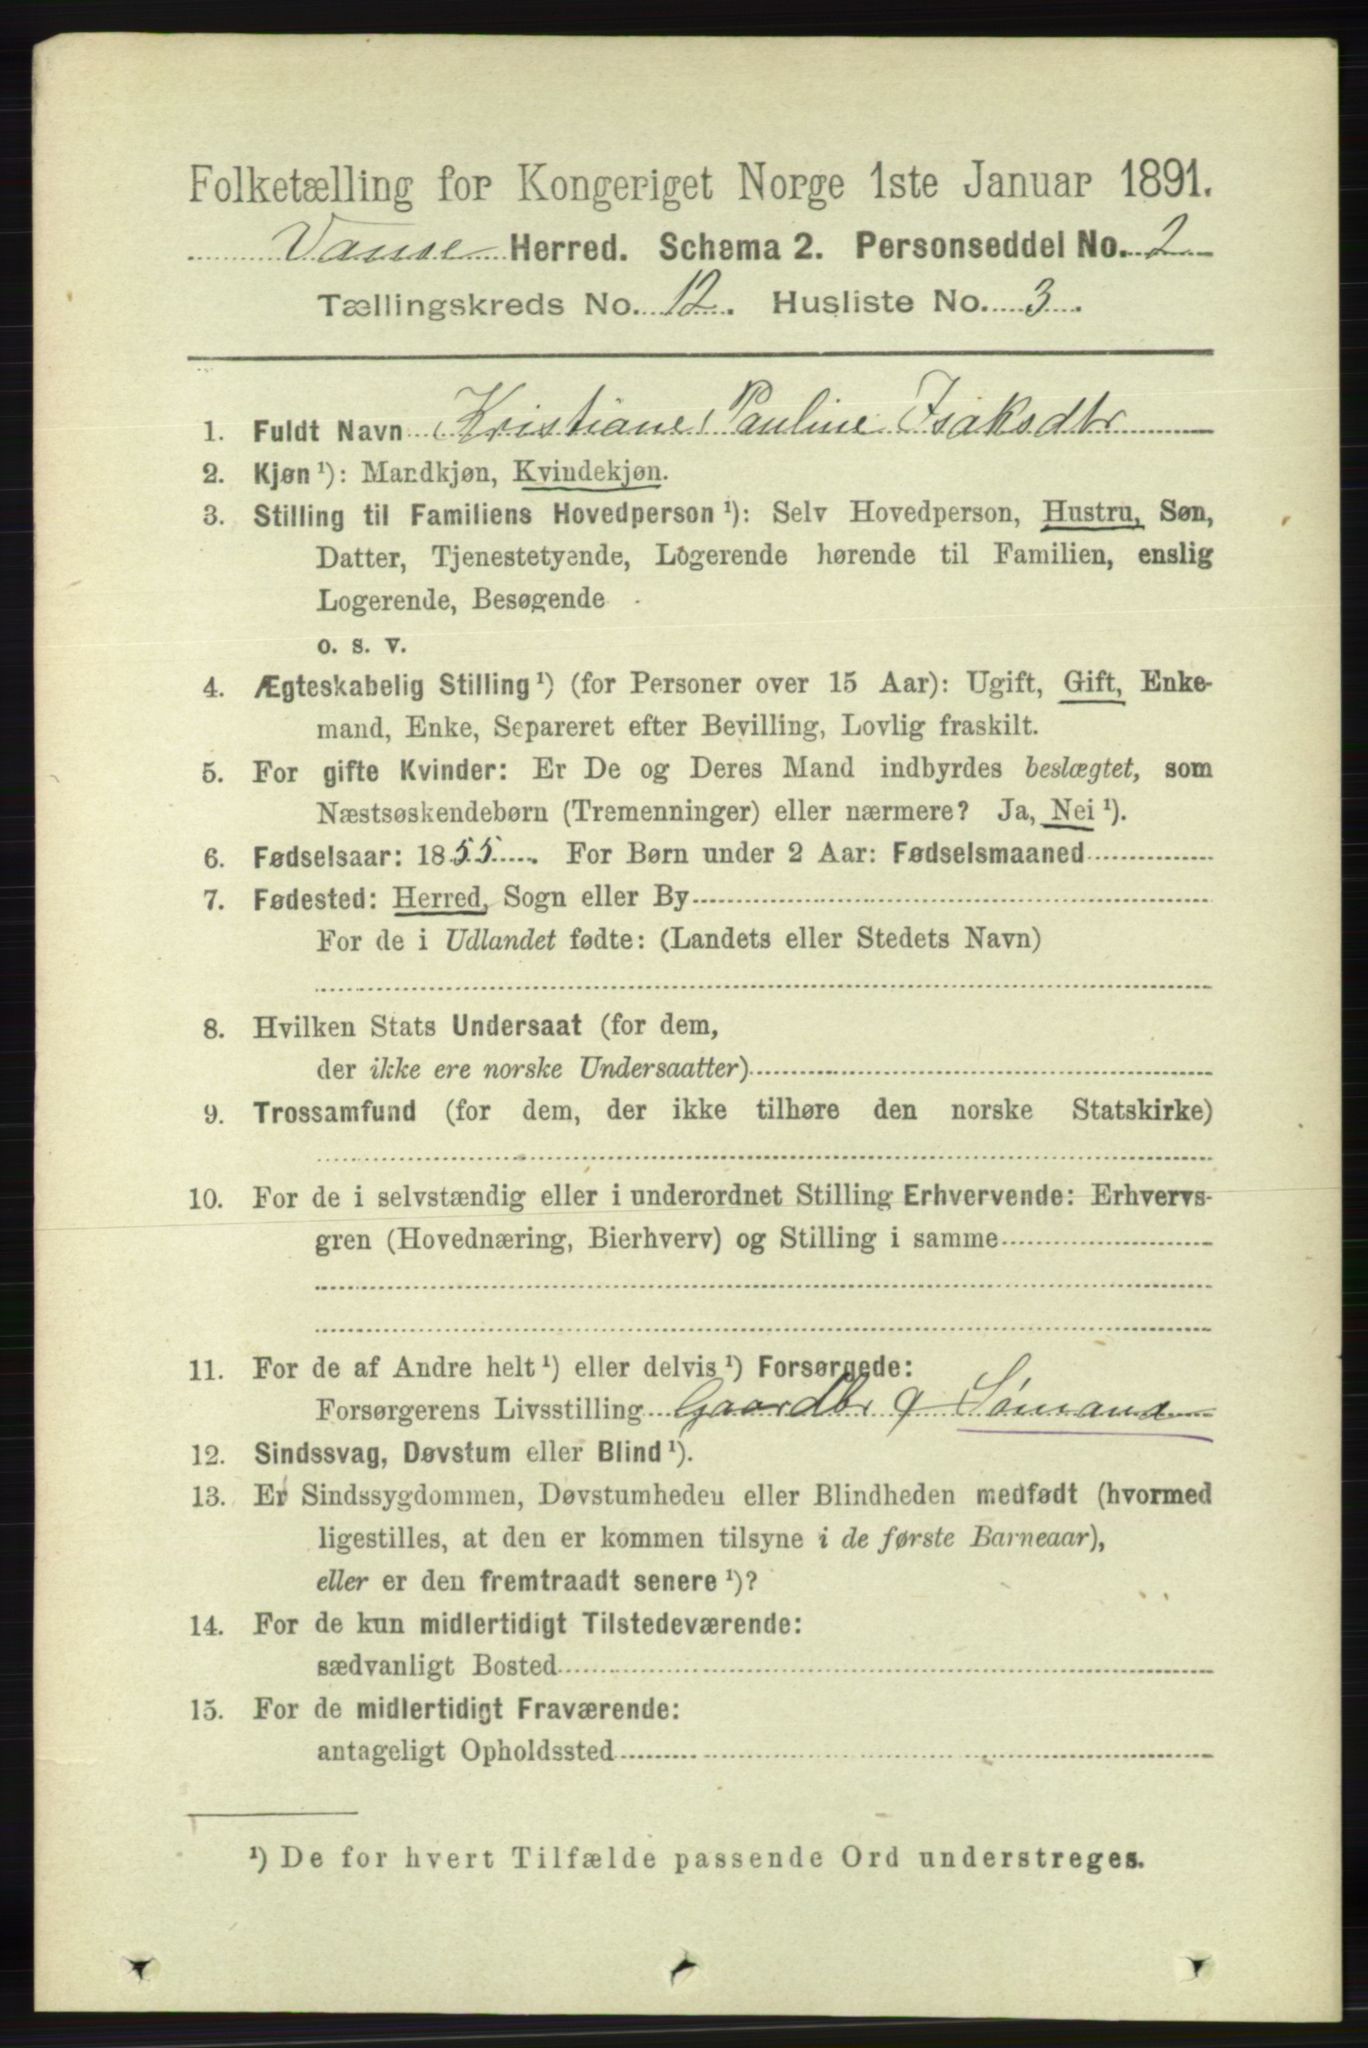 Folketælling for Kongeriget Norge 1ste Januar 1891.
Vanse Herred. Schema 2. Personseddel No. 2
Tællingskreds No. 12. Husliste No. 3.
1. Fuldt Navn Kristiane Pauline Isaksdtr
2. Kjøn ¹): Mandkjøn, Kvindekjøn.
3. Stilling til Familiens Hovedperson ¹): Selv Hovedperson, Hustru, Søn,
Datter, Tjenestetyende, Logerende hørende til Familien, enslig
Logerende, Besøgende
o. s. v.
4. Ægteskabelig Stilling ¹) (for Personer over 15 Aar): Ugift, Gift, Enke-
mand, Enke, Separeret efter Bevilling, Lovlig fraskilt.
5. For gifte Kvinder: Er De og Deres Mand indbyrdes beslægtet, som
Næstsøskendebørn (Tremenninger) eller nærmere? Ja, Nei ¹).
6. Fødselsaar: 1855. For Børn under 2 Aar: Fødselsmaaned
7. Fødested: Herred, Sogn eller By
For de i Udlandet fødte: (Landets eller Stedets Navn)
8. Hvilken Stats Undersaat (for dem,
der ikke ere norske Undersaatter)
9. Trossamfund (for dem, der ikke tilhøre den norske Statskirke)
10. For de i selvstændig eller i underordnet Stilling Erhvervende: Erhvervs-
gren (Hovednæring, Bierhverv) og Stilling i samme
11. For de af Andre helt ¹) eller delvis ¹) Forsørgede:
Forsørgerens Livsstilling Gaardbr q Sømand
12. Sindssvag, Døvstum eller Blind ¹).
13. Er Sindssygdommen, Døvstumheden eller Blindheden medfødt (hvormed
ligestilles, at den er kommen tilsyne i de første Barneaar),
eller er den fremtraadt senere ¹)?
14. For de kun midlertidigt Tilstedeværende:
sædvanligt Bosted
15. For de midlertidigt Fraværende:
antageligt Opholdssted
¹) De for hvert Tilfælde passende Ord understreges.